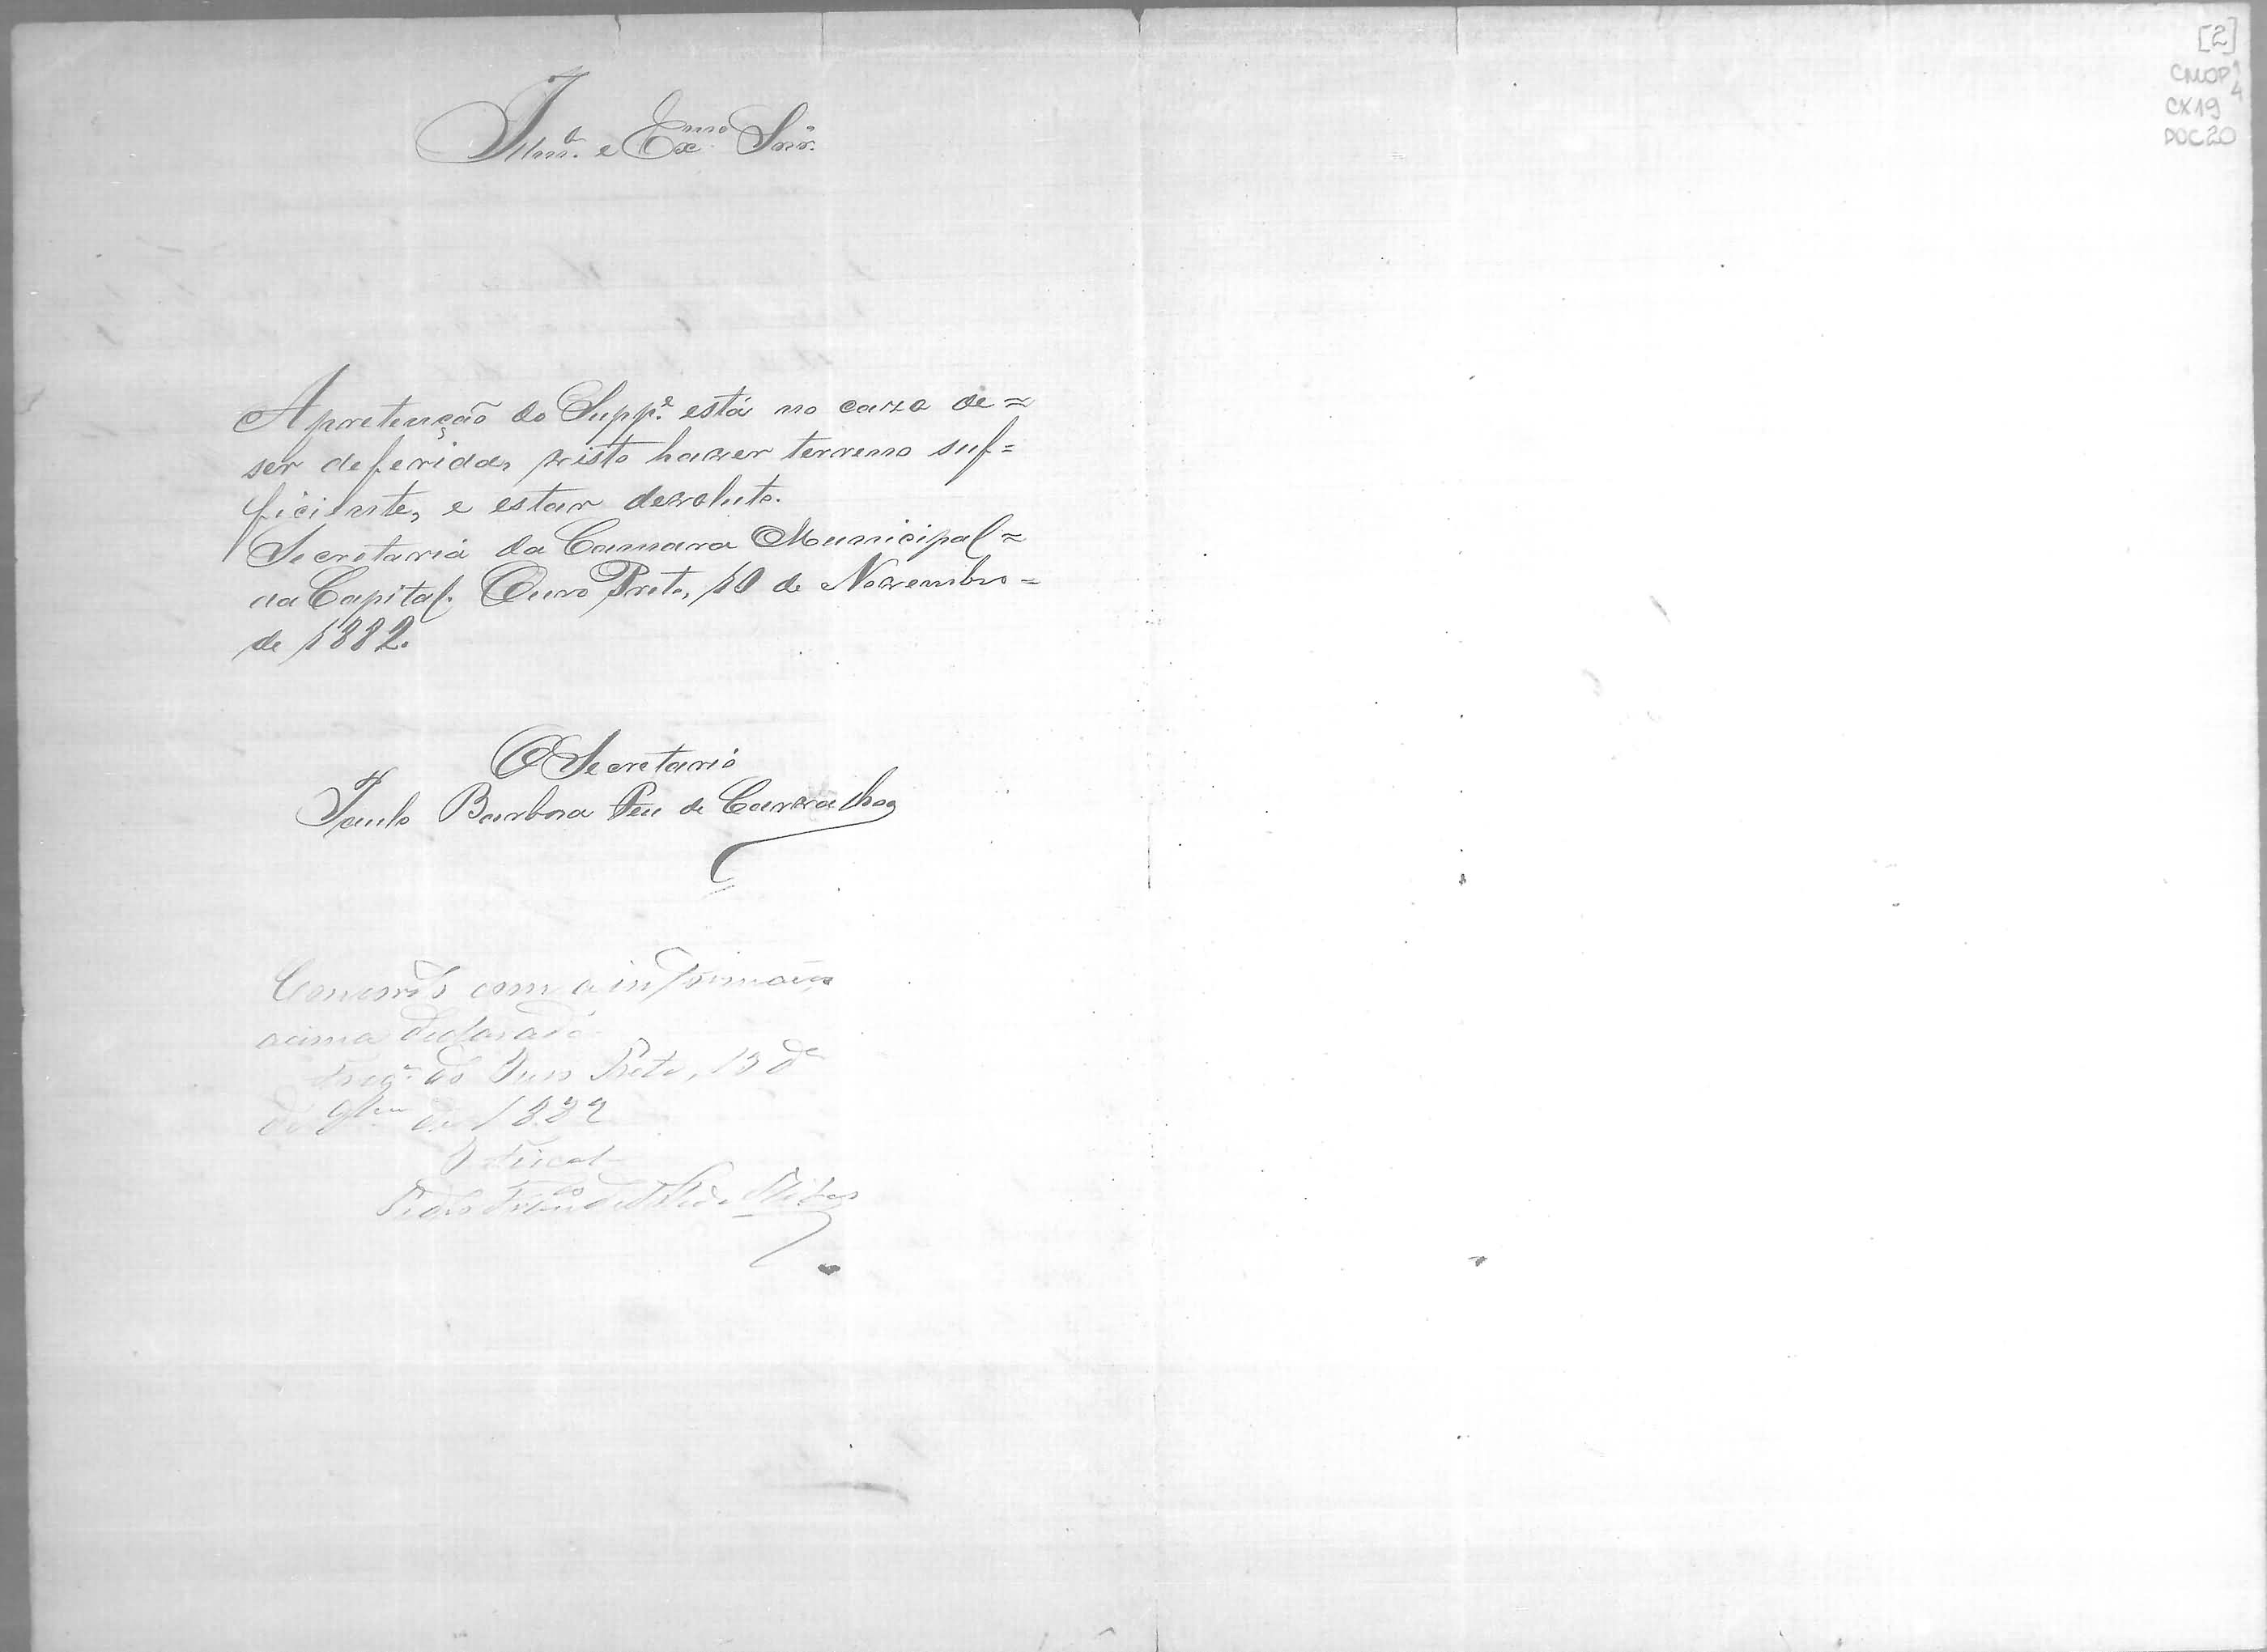 [2]
CMOP
CX19
DOC20
Illmo. e Exmo. Snr.
A pretenção do Suppe. está no cazo de =
ser deferida, visto haver terreno suf=
ficiente, e estar devoluto.
Secretaria da Camara Municipal =
da Capital. Ouro Preto, 10 de Novembro =
de 1882.
O Secretario
Paulo Barbosa de Carvalho
com a informação
acima declarada
Preto, 13 de
de 1882
O Fiscal
Pedro